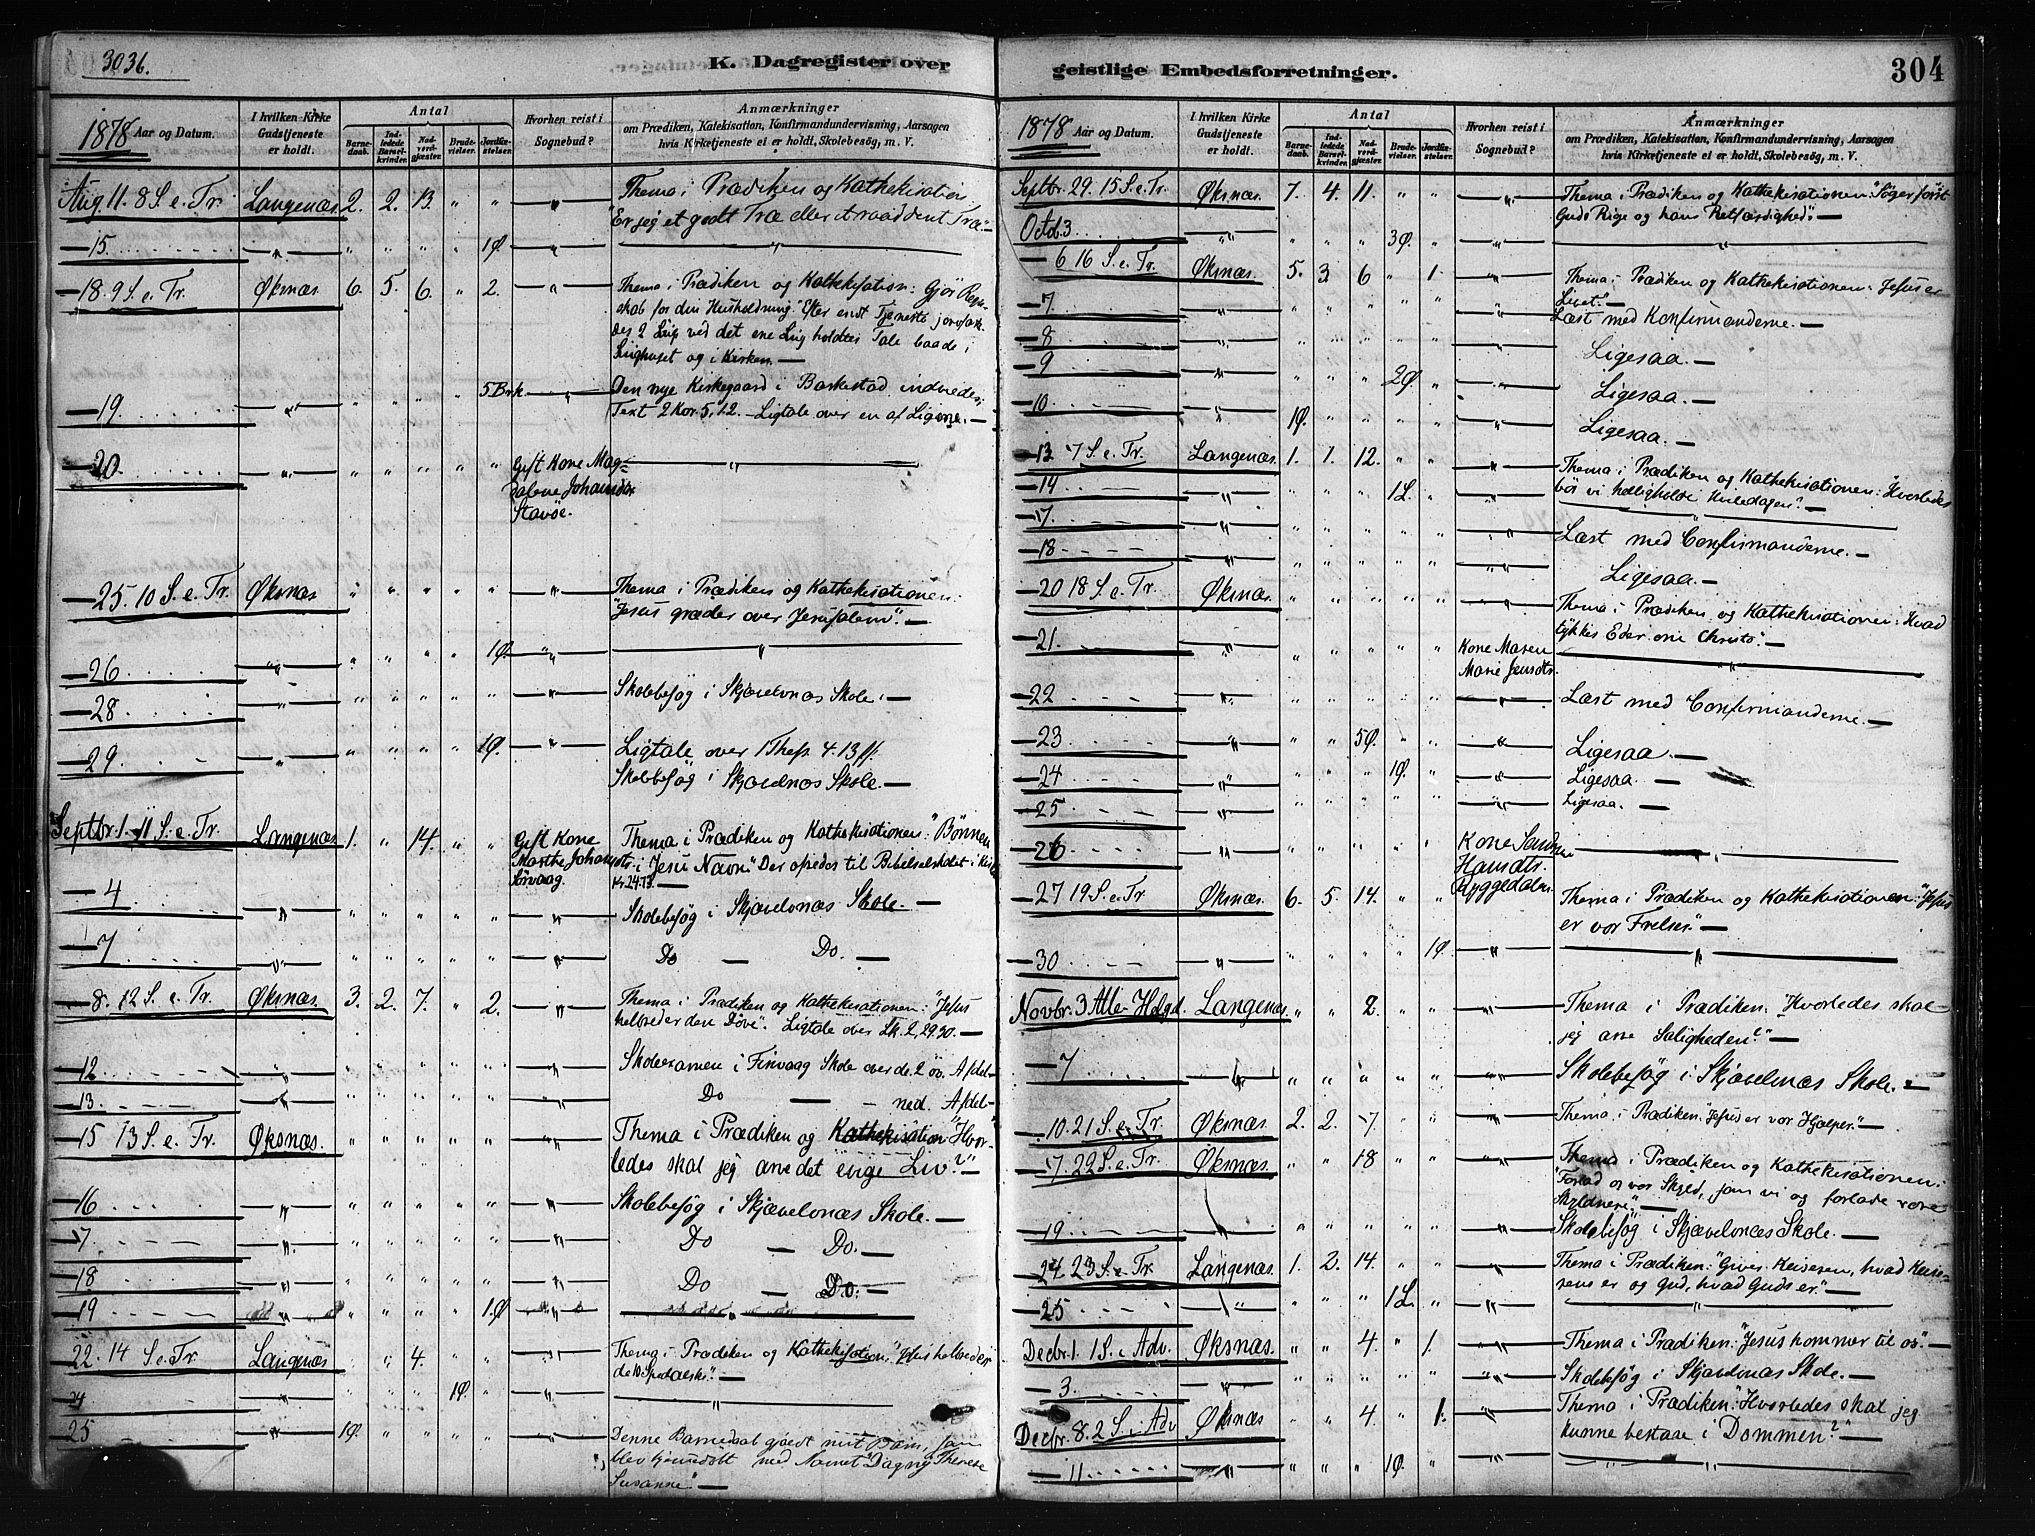 3036.
K. Dagregister over
1878 Aar og Datum.
I hvilken Kirke Gudstjeneste er holdt.
Antal
Barnedaab.
Indledede Barselkvinder.
Nadvordgjester.
Brudevielser.
Jordfæstelser.
Hvorhen reist i Sognebud?
Anmærkninger
om Prædiken, Katekisation, Konfirmandundervisning, Aarsagen
hvis Kirketjeneste ei er holdt, Skolebesøg, m. V.
Aug. 11. 8 S. e. Tr. Langenæs 2. 2. 13. " " " Thema i Prædiken og Kathekisation
"Er jeg et godt Træ eller et raaddent Træ" —
— 15 " " " " " 1Ø. " "
— 18. 9 S. e. Tr. Øksnæs 6. 5. 6. " 2. " Thema i Prædiken og Kathekisation: Gjör Regn-
skab for din Husholdning." Efter endt Tjeneste jordfæst-
des 2 Liig ved det ene Liig holdtes Tale baade i
Liighuset og i Kirken. —
— 19. " " " " " 5 Brk. " Den nye Kirkegaard i Barkestad indviedes;
Text 2 Kor. 5, 1.2. – Ligtale over en af Ligene. —
— 20. " " " " " " Gift Kone Mag- "
dalene Johansdtr
Stavøe.
— 25. 10 S. e. Tr. Øksnæs " " " " " " Thema i Prædiken og Kathekisationen:
"Jesus græder over Jerusalem". —
— 26 " " " " " 1Ø. " "
— 28 " " " " " " " Skolebesøg i Skjævelnæs Skole. —
— 29 " " " " " 1Ø. " Ligtale over 1 Thess. 4. 13 ff.
Skolebesøg i Skjævelnæs Skole. —
Septbr. 1. 11 S. e. Tr. Langenæs 1. " 14. " " Gift Kone Thema i Prædiken og Kathekisationen: "Bønnen
Marthe Johansdtr. i Jesu Navn." Der ofredes til Bibelselskabet i Kirken
Sørvaag Kr. 24.73. —
— 4 " " " " " " " Skolebesøg i Skjævelnæs Skole. —
— 7 " " " " " " " Do — Do. —
— 8. 12 S. e. Tr. Øksnæs. 3. 2. 7. " 2. " Thema i Prædiken og Kathekisationen: "Jesus
helbreder den Døve". Ligtale over Lk. 2, 29.30. —
— 12 " " " " " " " Skoleexamen i Finvaag Skole over de 2 öv. Afdel-
— 13. " " " " " " " Do — – ned. Afdel-
— 15 13 S. e. Tr. Øksnæs. " " " " " " Thema i Prædiken og Kathekisation "Hvor-
ledes skal jeg arve det evige Liv?" —
— 16 " " " " " " " Skolebesøg i Skjævelnæs Skole. —
— 17. " " " " " " " Do — Do. —
— 18 " " " " " " " Do — Do. —
— 19 " " " " " 1Ø " "
— 22. 14 S. e. Tr. Langenæs " " 4. " " " Thema i Prædiken og Kathekisation: "Jesus helbreder
de 10 Spedalske". —
— 24 " " " " 1Ø. " " "
— 25 " 1Ø. " " " " " Denne Barnedaab gjordt mit Barn, som
blev hjemmedøbt med Navnet "Dagny Therese
Susanne" —
geistlige Embedsforretninger.
304
1878 Aar og Datum.
I hvilken Kirke Gudstjeneste er holdt.
Antal
Barnedaab.
Indledede Barselkvinder.
Nadvordgjester.
Brudevielser.
Jordfæstelser.
Hvorhen reist i Sognebud?
Anmærkninger
om Prædiken, Katekisation, Konfirmandundervisning, Aarsagen
hvis Kirketjeneste ei er holdt, Skolebesøg, m. V.
Septbr. 29. 15 S. e. Tr. Øksnæs. 7. 4. 11. " " " Thema i Prædiken og Kathekisationen: "Søger først
Guds Rige og hans Retfærdighed". —
Octb. 3 " " " " 3Ø. " " "
— 6 16 S. e. Tr. Øksnæs. 5. 3. 6 " 1 " Thema i Prædiken og Kathekisationen: Jesus er
Livet". —
— 7 " " " " " " " Læst med Konfirmanderne. —
— 8 " " " " " " " Ligesaa. —
— 9 " " " " 2Ø. " " Ligesaa. —
— 10 " 1Ø. " " " " " Ligesaa. —
— 13 17 S. e. Tr. Langenæs. 1. 1. 12. " " " Thema i Prædiken og Kathekisationen: "Hvorledes
bör vi helligholde Hviledagen". —
— 14 " " " " 1L. " " "
— 17. " " " " " " " Læst med Confirmanderne. —
— 18 " " " " " " " Ligesaa. —
— 20 18 S. e. Tr. Øksnæs. " " " " " " Thema i Prædiken og Kathekisationen: "Hvad
tykkes Eder om Christo". —
— 21. " " " " " " Kone Maren "
Marie Jensdtr.
— 22 " " " " " " " Læst med Confirmanderne. —
— 23 " " " 5Ø. " " " Ligesaa. —
— 24 " " " " 1Ø. " " Ligesaa. —
— 25 " " " " " " " Ligesaa. —
— 26 " " " " " " Kone "
Hansdtr.
Ryggedalen.
— 27 19 S. e. Tr Øksnæs. 6. 5. 14. " " " Thema i Prædiken og Kathekisationen: "Jesus
er vor Frelser." —
— 30 " " " " " 1Ø. " "
Novbr. 3 Alle Helgd. Langenæs. " " 2. " " " Thema i Prædiken: "Hvorledes skal
jeg arve Saligheden?" —
— 7 " " " " " " " Skolebesøg i Skjævelnæs Skole. —
— 10. 21 S. e. Tr. Øksnæs. 2. 2. 7. " " " Thema i Prædiken: "Jesus er vor Hjælper". —
— 17. 22 S. e. Tr. Øksnæs. " " 18 " " " Thema i Prædiken og Kathekisationen:
"Forlad os vor Skyld, som vi og forlade vore
Skyldnere". —
— 19. " " " " " " " Skolebesøg i Skjævelnæs Skole. —
— 24. 23 S. e. Tr. Langenæs. 1. 2. 14. " " " Thema i Prædiken: "Giver Keiseren, hvad Keise-
rens er og Gud, hvad Guds er". —
— 25 " " " " 1L. " " "
Decbr. 1. 1 S. i Adv. Øksnæs. " " 4. " 1. " Thema i Prædiken: "Jesus kommer til os". —
— 3. " " " " " " " Skolebesøg i Skjævelnæs Skole. —
Decbr. 8. 2 S. i Adv Øksnæs " " 4. " 1. " Thema i Prædiken: "Hvorledes skal jeg
kunne bestaa i Dommen?" —
— 11 " " " " 1Ø. " " "